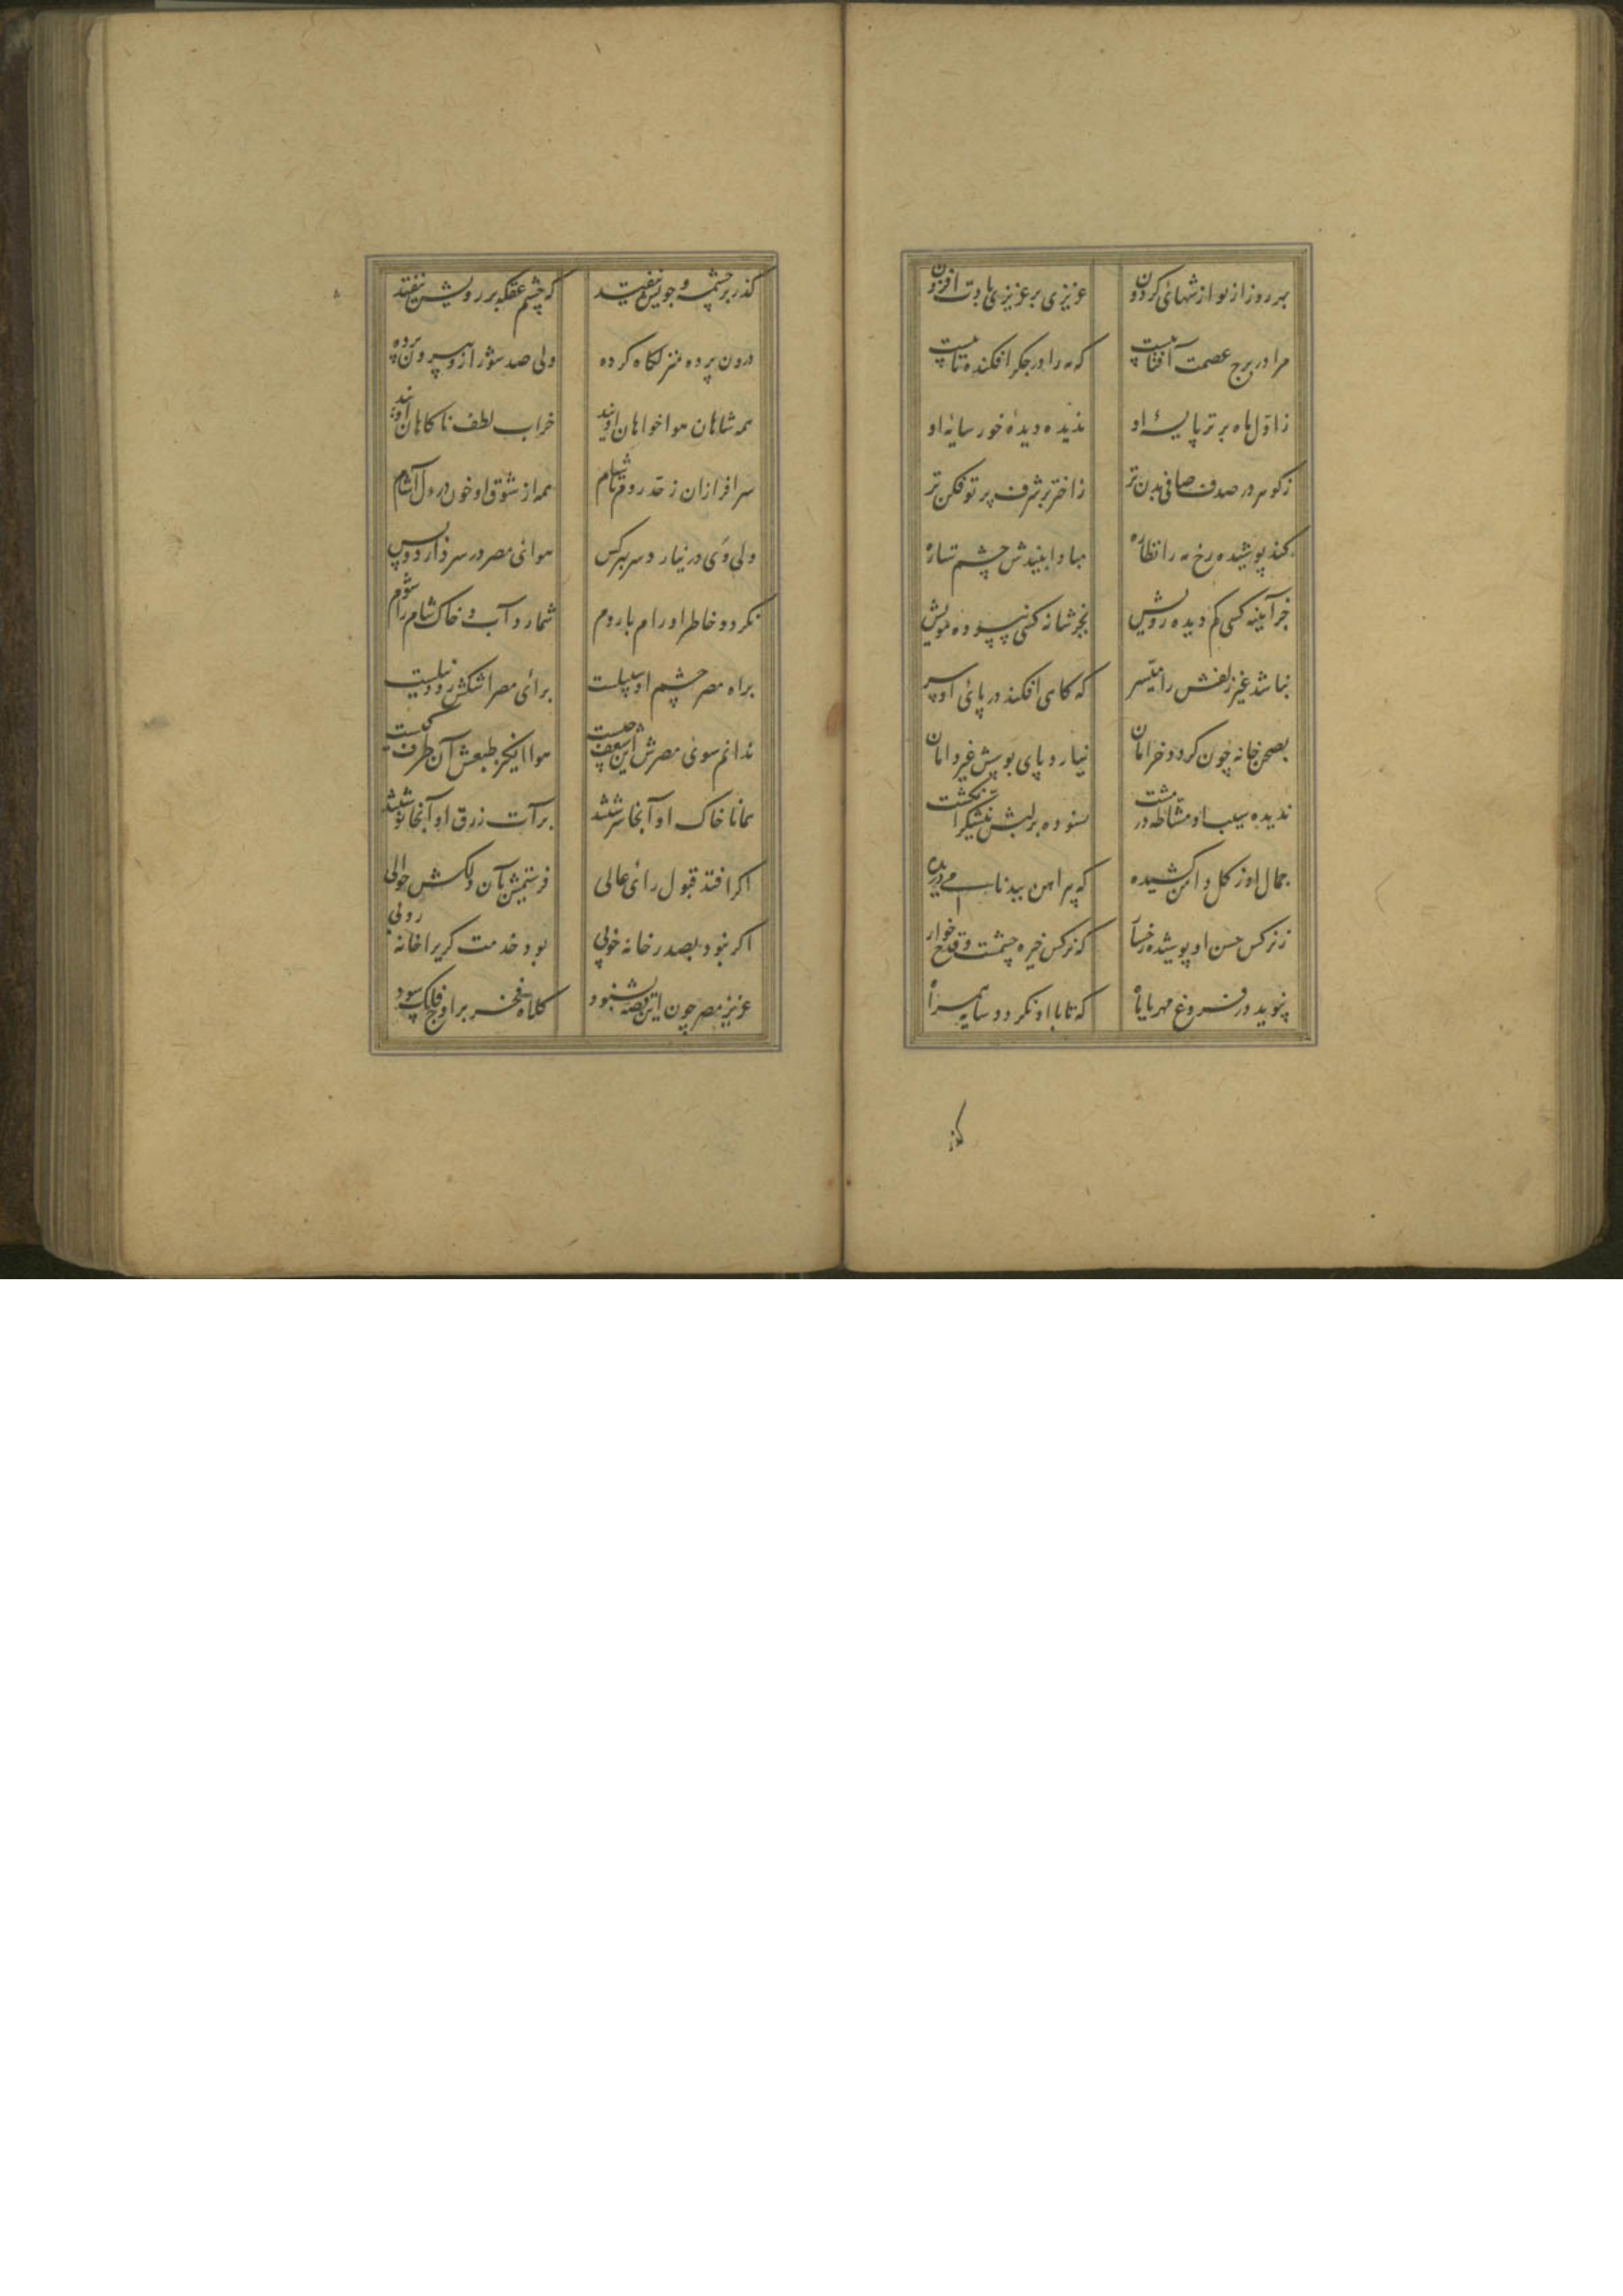 بهر روز از نوازشهای گردون عزیزی بر عزیزی بادت افزون
مرا در برج عصمت آفتابیست که مه را در جکر افکنده تابیست
ز اوج ماه برتر پایهٔ او ندیده دیدهٔ خور سایهٔ او
ز کوهر در صدف صافی بدن تر ز اختر بر شرف پرتو فکن تر
کند پوشیده رخ مه را نظاره مبادا بیندش چشم ستاره
جز آیینه کسی کم دیده رویش بجز شانه کسی نپسوده مویش
نباشد غیر زلفش را میسر که کاهی افکند در پای او سر
بصحن خانه چون کردد خرامان نیارد پای بوسش غیر دامان
ندیده سیب او مشاطه در مشت نسوده بر لبش نیشکر انکشت
جمال او ز کل دامن کشیده که پیراهن ببدنامی دریده
ز نرکس حسن او پوشیده رخسار که نرکس خیره چشمست و قدح خوار
نپوید در فروغ مهر یا ماه که تا با او نکردد سایه همراه
کذر
کذر بر چشمه و جویش نیفتد که چشم عکس بر رویش نیفتد
درون پرده منزلکاه کرده ولی صد شور ازو بیرون پرده
همه شاهان هواخواهان اویند خراب لطف ناکاهان اویند
سرافرازان ز حد روم تا شام همه از شوق او خون در دل آشام
ولی وی در نیارد سر بهر کس هوای مصر در سر دارد و بس
نکردد خاطر او رام با روم شمارد آب و خاک شام را شوم
براه مصر چشم او سبیلست برای مصر اشکش رود نیلست
ندانم سوی مصرش این شعف چیست هوا انکیز طبعش آن طرف کیست
همانا خاک او آنجا سرشتند برات رزق او آنجا نوشتند
اکر افتد قبول رای عالی فرستیمش بآن دلکش حوالی
اکر نبود بصدر خانه خوبی بود خدمت کری را خانه روبی
عزیز مصر چون این قصه بشنود کلاه فخر بر اوج فلک سود